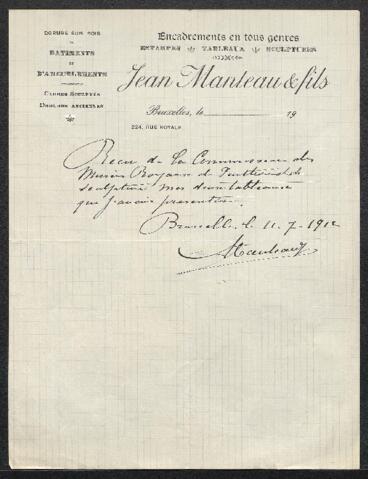 DORURE SUR BOIS
DE
BATIMENTS
ET
D'AMEUBLEMENTS
CADRES SCULPTÉS
DORURES ANCIENNES
Encadrements en tous genres
ESTAMPES TABLEAUX SCULPTURES
Jean Manteau & fils
Bruxelles, le 19
224, RUE ROYALE
Recu de La Commission des
Musées Royaux de Peinture et de
sculpture mes deux tableaux
que j'avais presenter
Bruxelle le 11-7-1912
Manteau